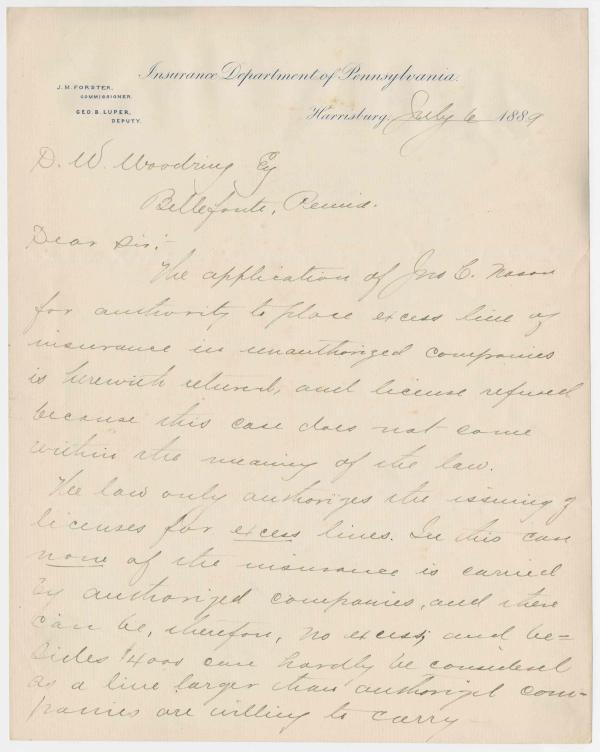 Insurance Department of Pennsylvania.
J. M. FORSTER,
COMMISSIONER.
GEO. B. LUPER,
DEPUTY.
Harrisburg, July 6 1889
D. W. Woodring Esq
Bellefonte, Penna.
Dear Sir:-
The application of Jno C. Nason
for authority to place excess line of
insurance in unauthorized companies
is herewith returned, and license refused
because this case does not come
within the meaning of the law.
The law only authorizes the issuing of
licenses for excess lines. In this case
none of the insurance is carried
by authorized companies, and there
can be, therefore, no excess; and be=
sides $4000 can hardly be considered
as a line larger than authorized com-
panies are willing to carry-